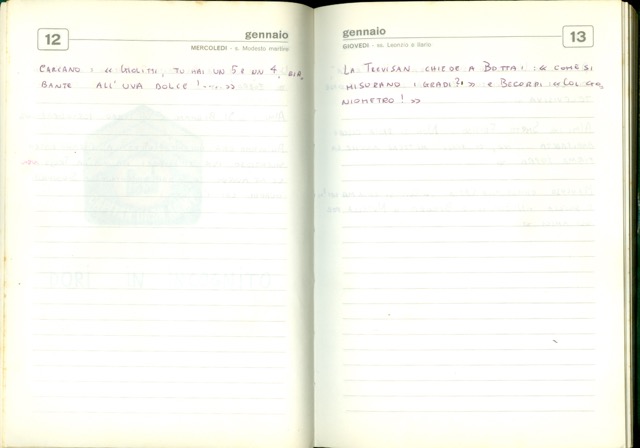 12
gennaio
MERCOLEDÌ - s. Modesto martire
CARCANO : « GIOLITTI, TU HAI UN 5 E UN 4,
BANTE ALL'UVA DOLCE !..... »
gennaio
13
GIOVEDÌ - ss. Leonzio e Ilario
LA TREVISAN CHIEDE A BOTTAI : « COME SI
MISURANO I GRADI ? » E BECORPI : « COL GO,
NIOMETRO ! »